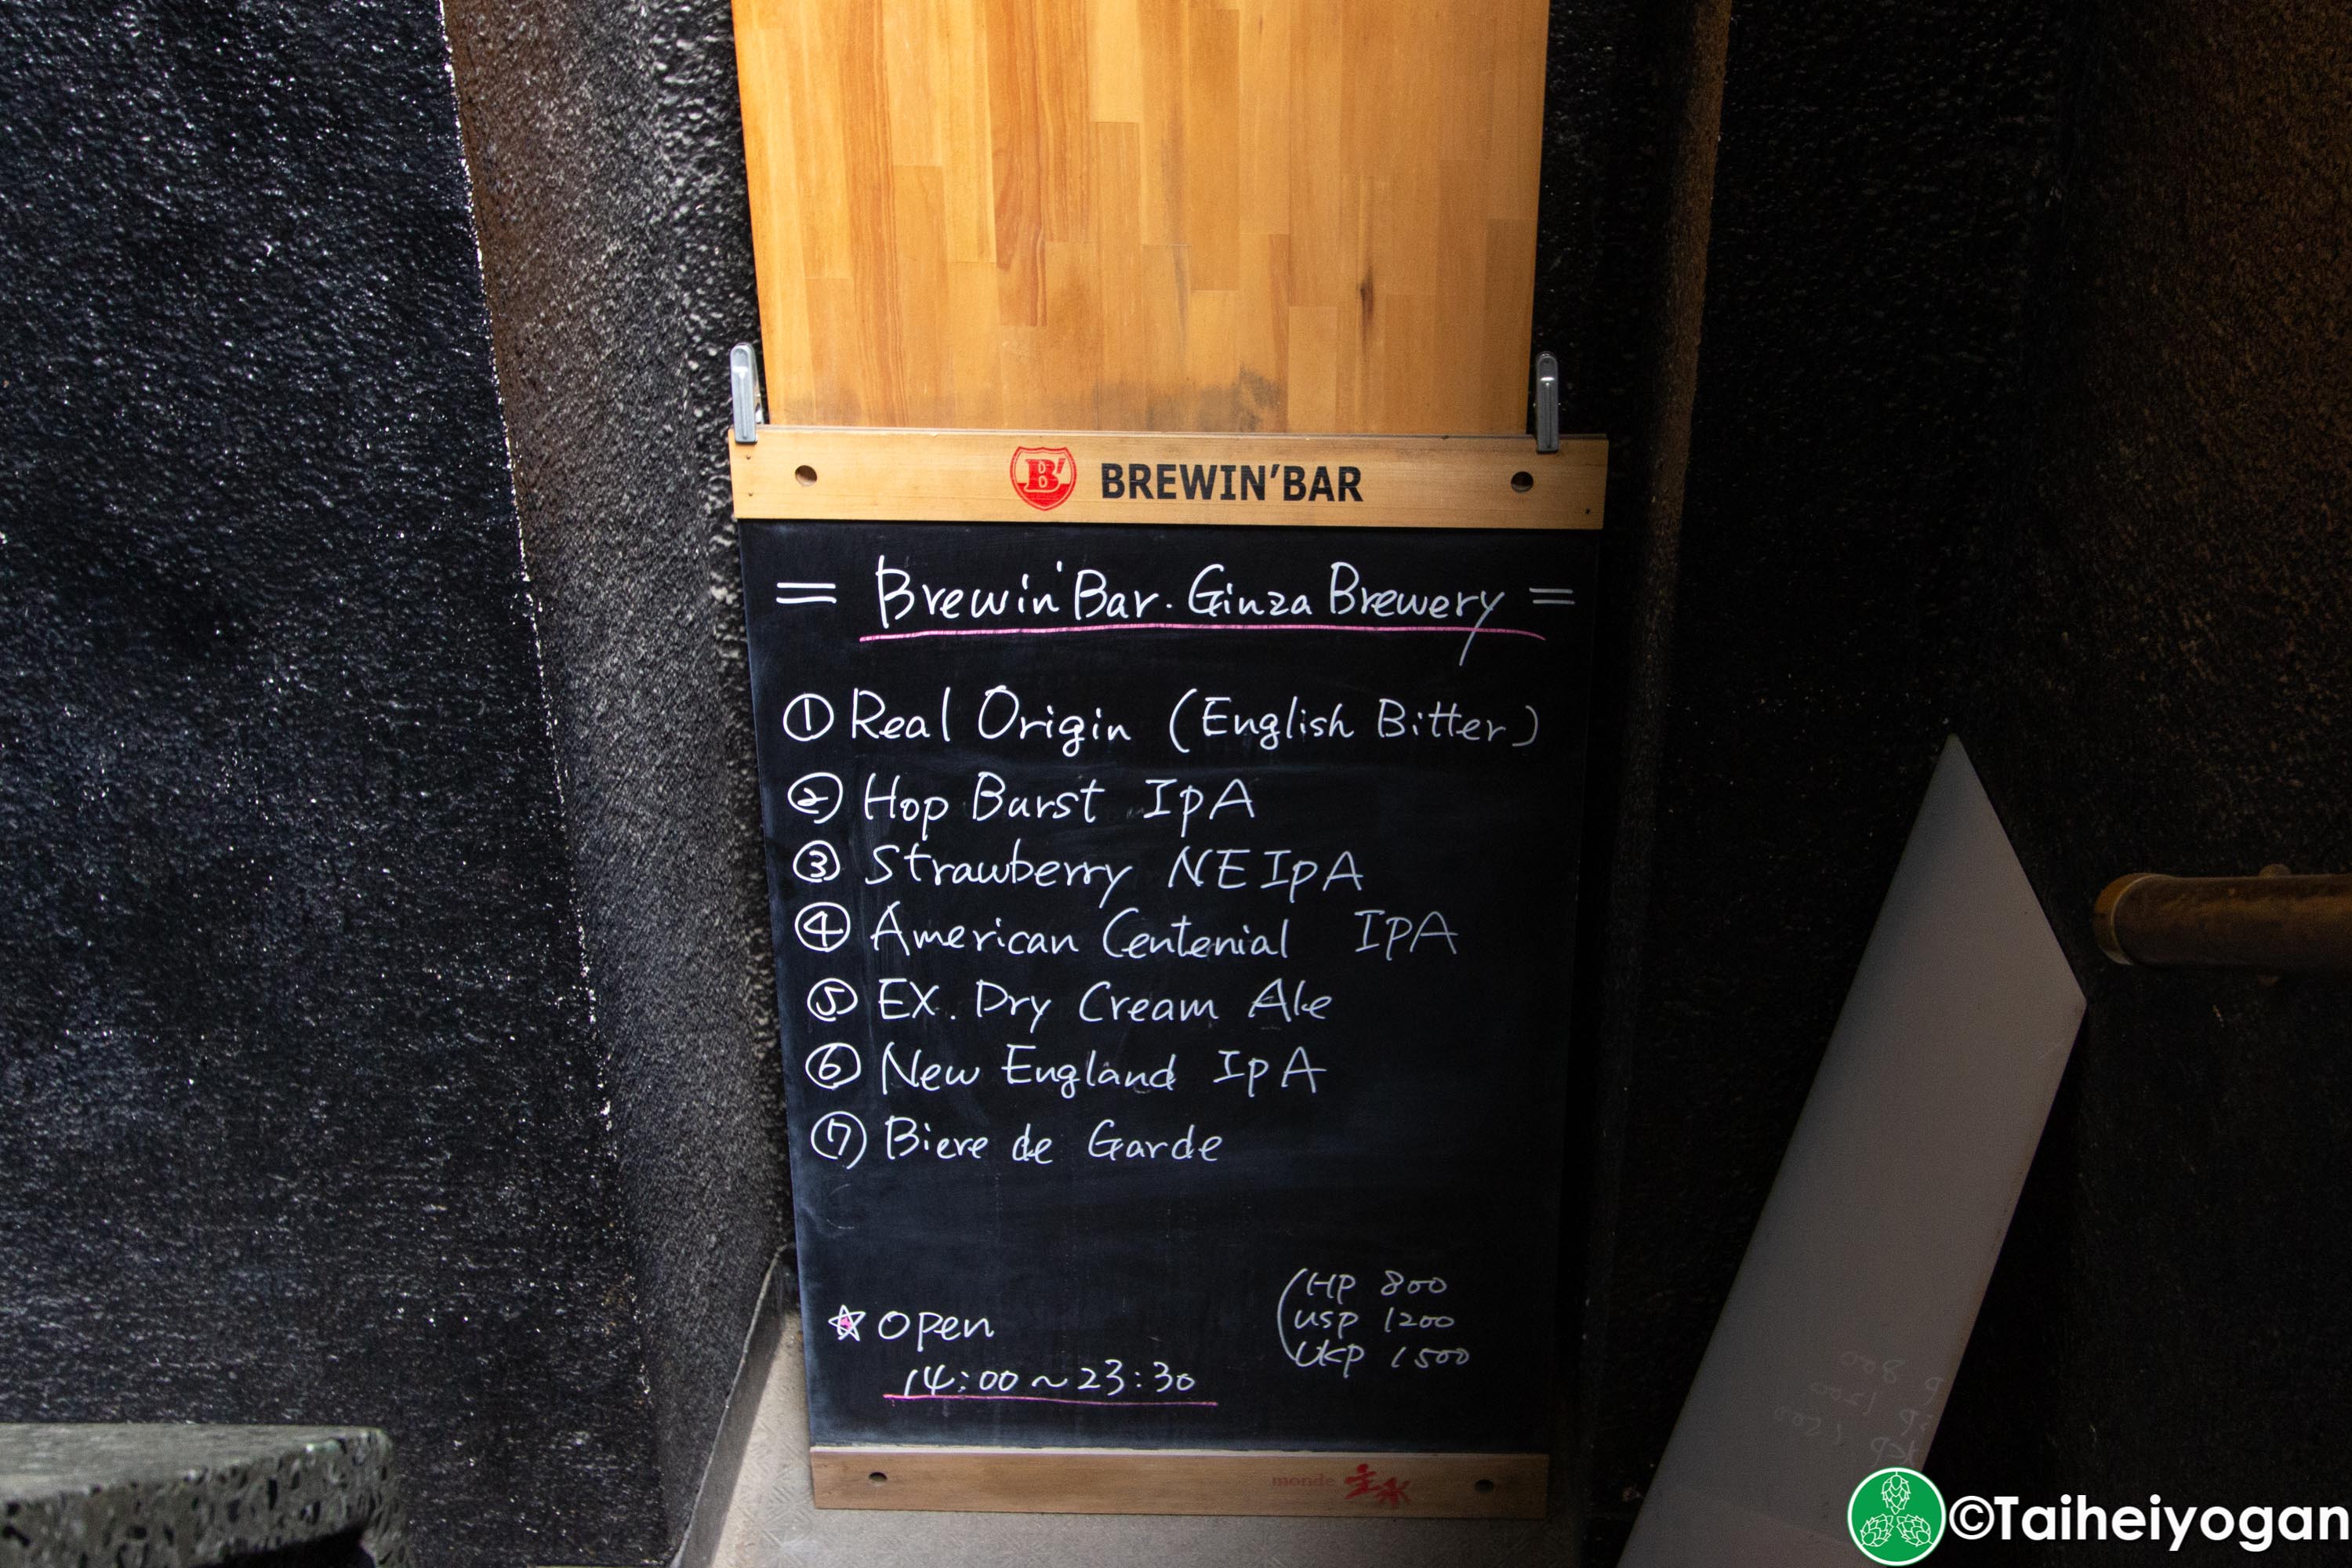 B'
BREWIN'BAR
= Brewin'Bar. Ginza Brewery =
① Real Origin (English Bitter)
② Hop Burst IpA
③ Strawberry NEIpA
④ American Centenial IPA
⑤ EX. Dry Cream Ale
⑥ New England IpA
⑦ Biere de Garde
☆ open
14:00~23:30
(HP 800
USP 1200
UKP 1500
monde
©Taiheiyogan